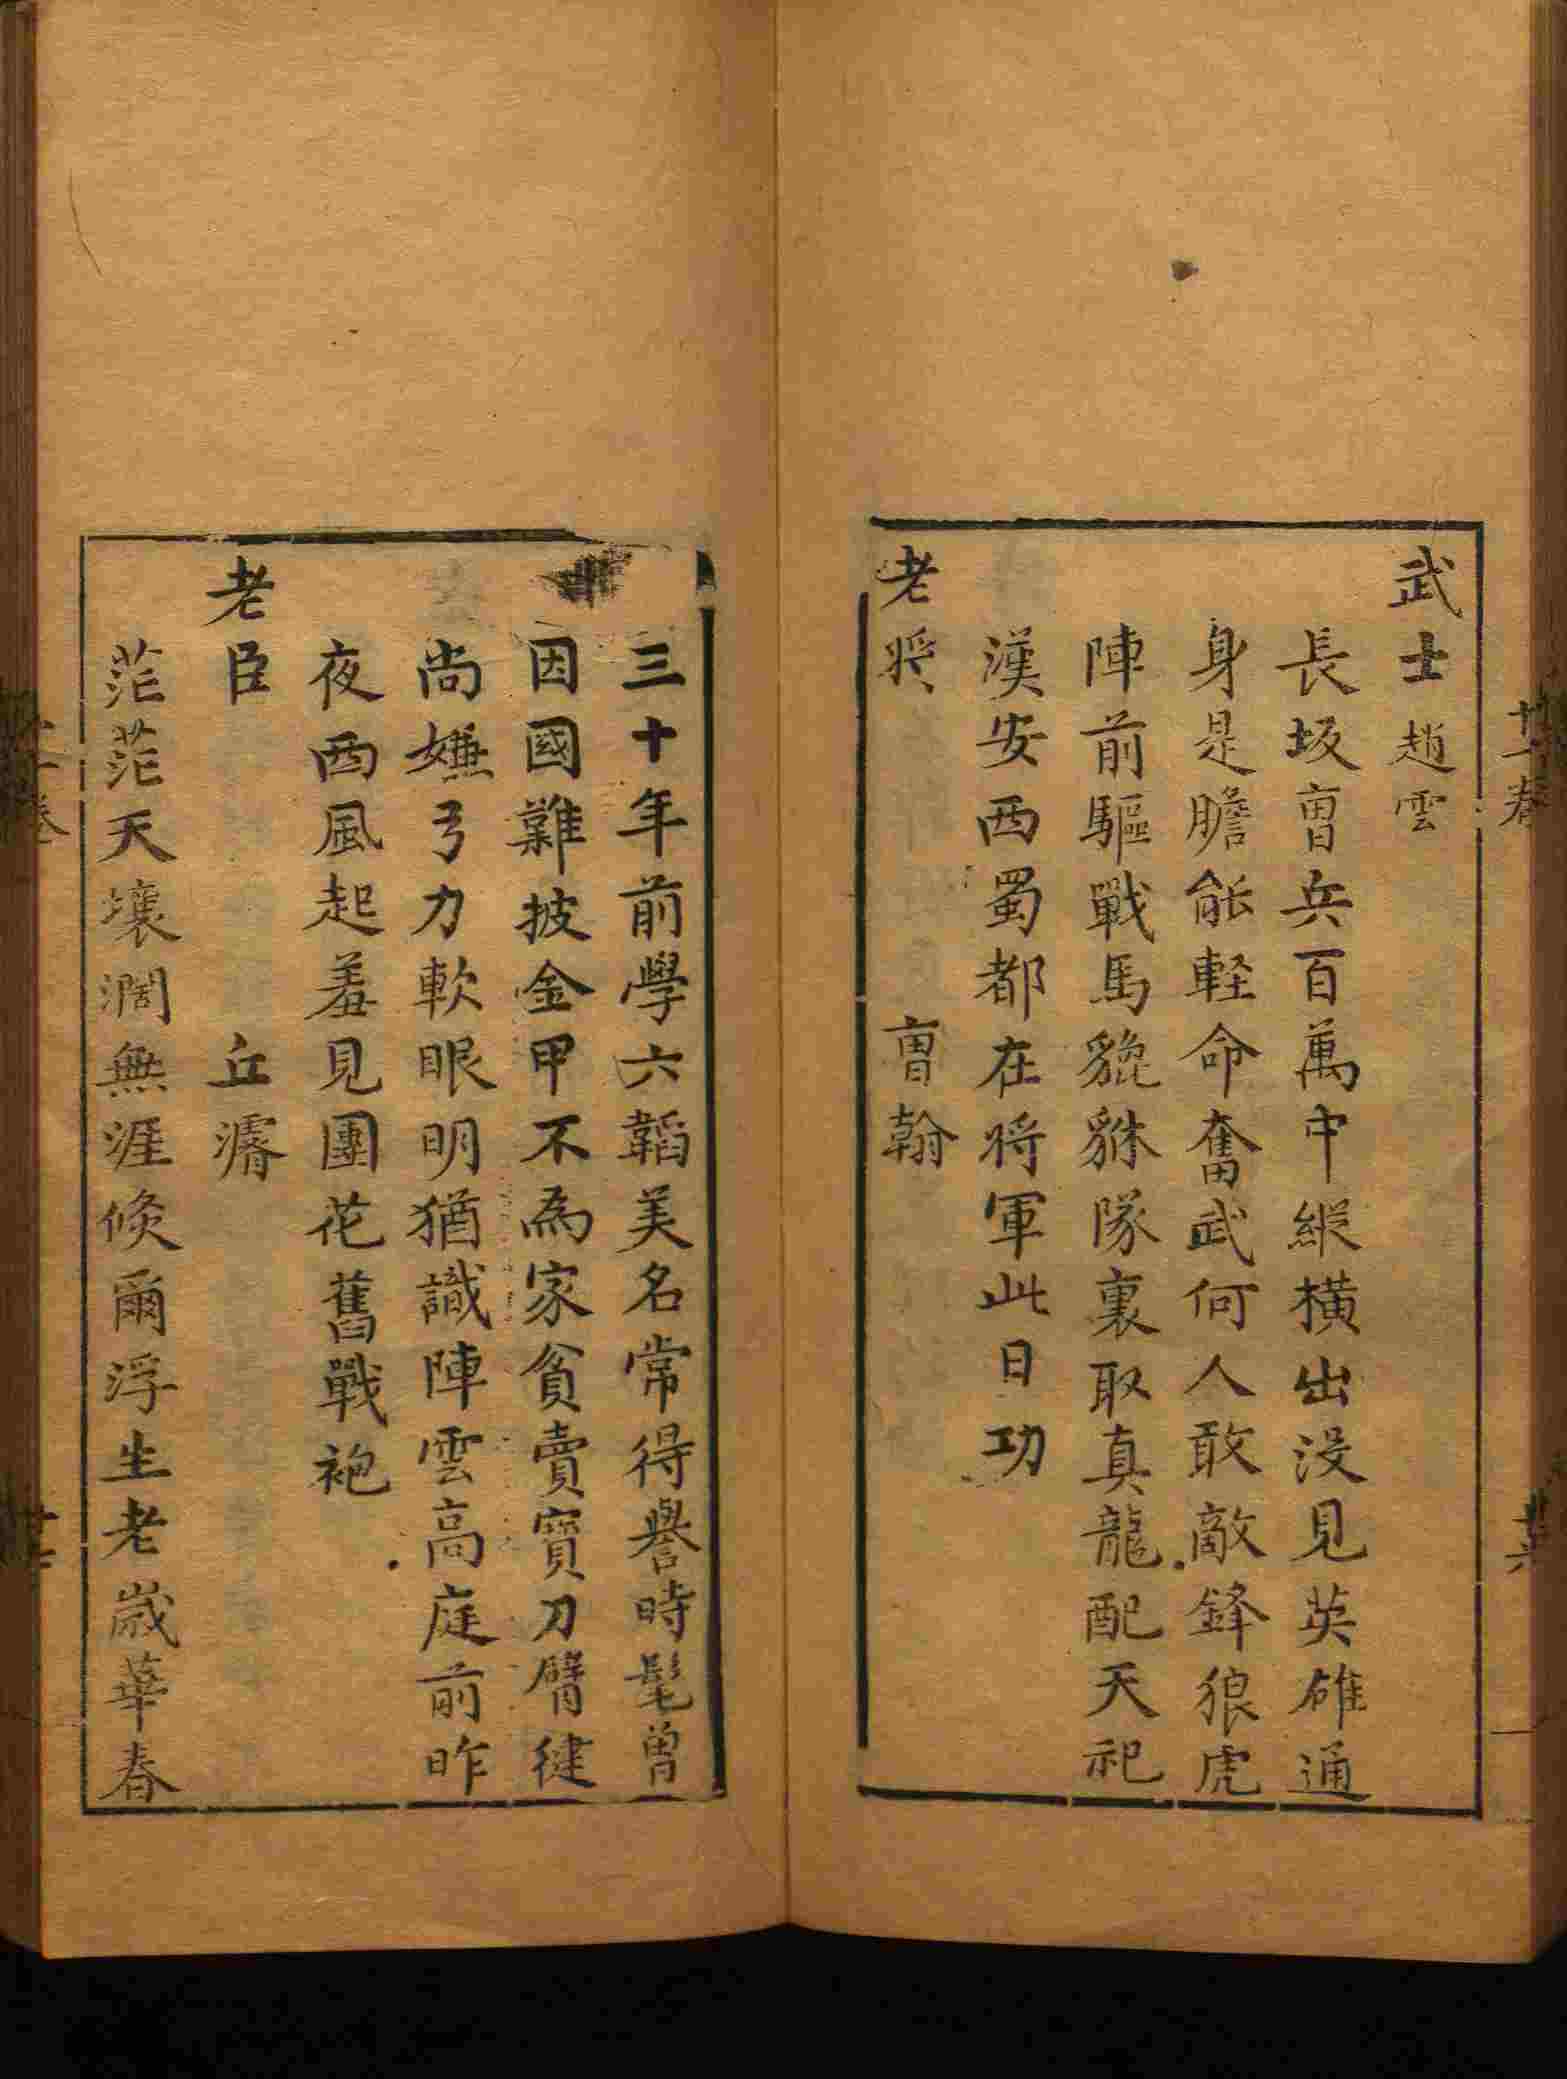 武士趙雲
長坂曺兵百萬中縱橫出没見英雄通
身是膽能軽命奮武何人敢敵鋒狼虎
陣前驅戰馬貔貅隊裏取真龍配天祀
漢安西蜀都在將軍此日功
老將 曺翰
三十年前學六韜美名常得譽時髦曽
因國難披金甲不為家貧賣寶刀臂健
尚嫌弓力軟眼明猶識陣雲高庭前昨
夜西風起羞見團花舊戰袍
老臣 丘濬
茫茫天壤濶無涯倏爾浮生老歲華春